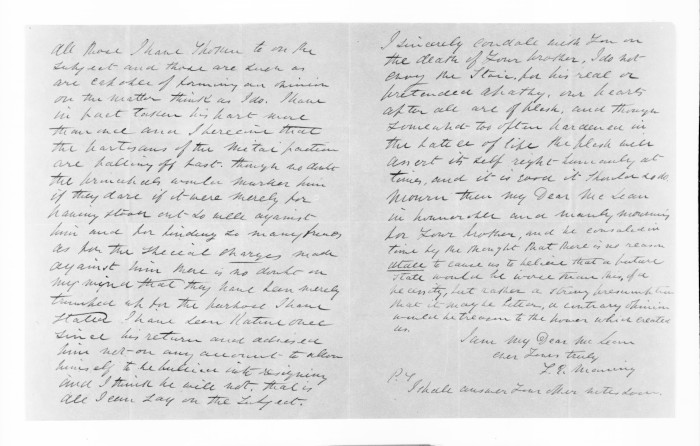 All those I have spoken to on the
subject and those are such as
are capable of forming an opinion
on the matter think as I do. I have
in fact taken his part more
than once and I perceive that
the partisans of the
are falling off fast. though no doubt
the would him
if they dare if it were merely for
having stood out so well against
him and for finding so many friends
as for the special charges made
against him there is no doubt on
my mind that they have been merely
trumped up for the purpose I have
stated. I have seen once
since his return and advised
him not on any account to allow
himself to be bullied into resigning
and I think he will not, that is
all I can say on the subject.
I sincerely condole with you on
the death of your brother, I do not
envy the Stoic, for his real or
pretended apathy, our hearts
after all are of flesh, and though
somewhat too often hardened in
the battle of life the flesh will
assert its self right sincerely at
times, and it is good it should so do.
Mourn then my Dear McLean
in honourable and manly mourning
for your brother, and be consoled in
time by the thought that there is no reason
atall to cause us to believe that a future
state would be worse than this, of a
necessity, but rather a strong presumption
that it may be better, a contrary opinion
would be treason to the honor which created
us.
I am my Dear McLean
ever yours truly
Manning
P.S.
I shall answer your other note soon